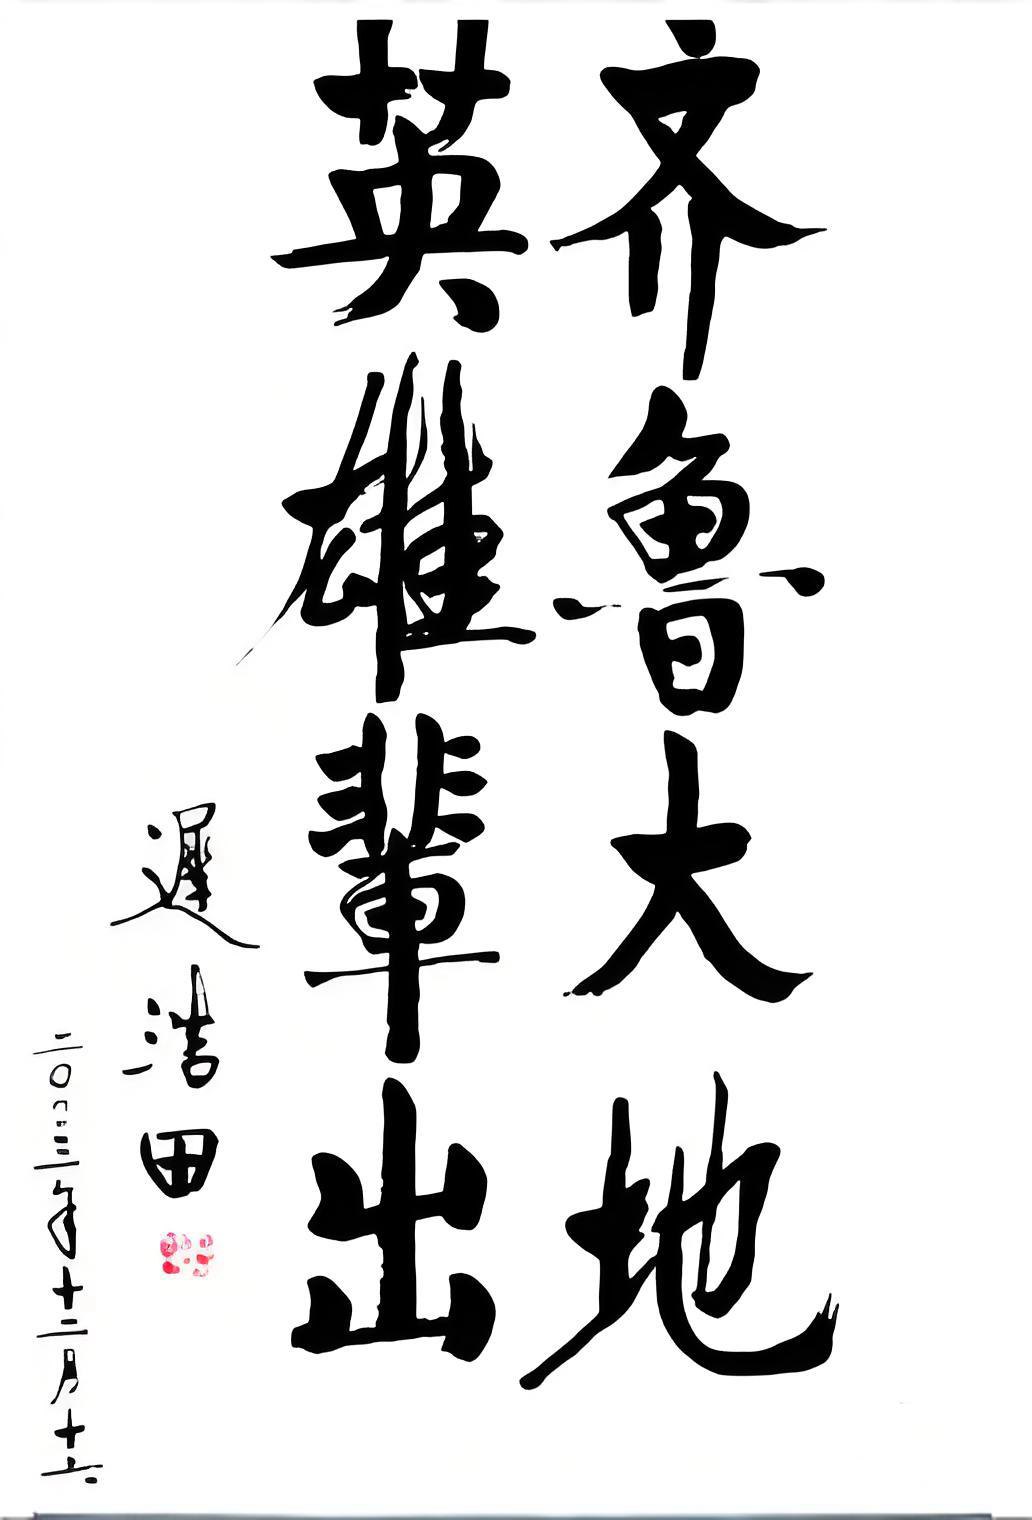 齐鲁大地
英雄輩出
遲浩田
二〇〇三年十二月十六